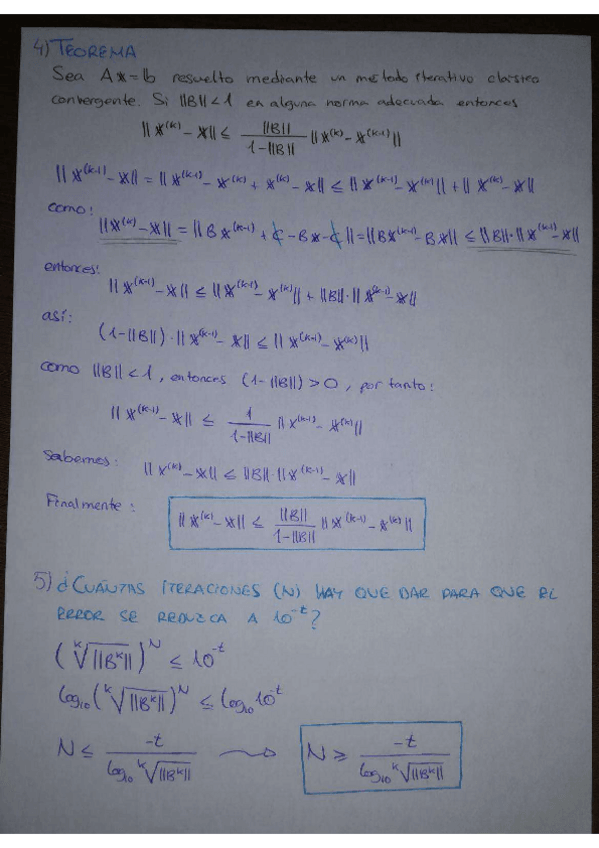 4) TEOREMA
Sea Ax=b resuelto mediante un método iterativo clásico
convergente. Si ||B|| < 1 en alguna norma adecuada entonces
||x^(k) - x|| ≤ ||B|| / (1-||B||) ||x^(k) - x^(k-1)||
||x^(k-1) - x|| = ||x^(k-1) - x^(k) + x^(k) - x|| ≤ ||x^(k-1) - x^(k)|| + ||x^(k) - x||
como:
||x^(k) - x|| = ||Bx^(k-1) + c - Bx - c|| = ||Bx^(k-1) - Bx|| ≤ ||B||·||x^(k-1) - x||
entonces:
||x^(k-1) - x|| ≤ ||x^(k-1) - x^(k)|| + ||B||·||x^(k-1) - x||
así:
(1-||B||)·||x^(k-1) - x|| ≤ ||x^(k-1) - x^(k)||
como ||B|| < 1, entonces (1-||B||) > 0, por tanto:
||x^(k-1) - x|| ≤ 1 / (1-||B||) ||x^(k-1) - x^(k)||
Sabemos: ||x^(k) - x|| ≤ ||B||·||x^(k-1) - x||
Finalmente: ||x^(k) - x|| ≤ ||B|| / (1-||B||) ||x^(k-1) - x^(k)||
5) ¿CUÁNTAS ITERACIONES (N) HAY QUE DAR PARA QUE EL
ERROR SE REDUZCA A 10^-t?
(ᵏ√||B^k||)^N ≤ 10^-t
log₁₀(ᵏ√||B^k||)^N ≤ log₁₀ 10^-t
N ≤ -t / log₁₀ ᵏ√||B^k|| → N ≥ -t / log₁₀ ᵏ√||B^k||